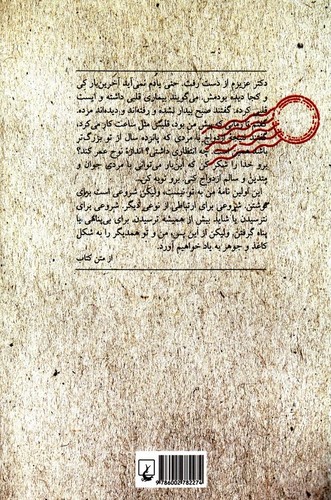 دکتر عزیزم از دست رفت. حتی یادم نمی‌آید آخرین‌بار کی
و کجا دیده بودمش. می‌گویند بیماری قلبی داشته و ایست
قلبی کرده؛ گفتند صبح بیدار نشده و رفته‌اند و دیده‌اند مرده.
من بود، قلبش مثل ساعت کار می‌کرد.
با مردی که پانزده سال از تو بزرگ‌تر
انتظاری داشتی؟ اندازهٔ نوح عمر کند؟
برو خدا را شکر کن که این‌بار می‌توانی با مردی جوان و
چندین و سالم ازدواج کنی. برو توبه کن.
این اولین نامهٔ من به تو نیست، ولیکن شروعی است برای
گفتن. شروعی برای ارتباطی از نوعی دیگر. شروعی برای
نترسیدن یا شاید بیش از همیشه ترسیدن. برای بی‌پناهی یا
پناه گرفتن. ولیکن از این پس، من و تو همدیگر را به شکل
کاغذ و جوهر به یاد خواهیم آورد.
از متن کتاب
9 786002 782274